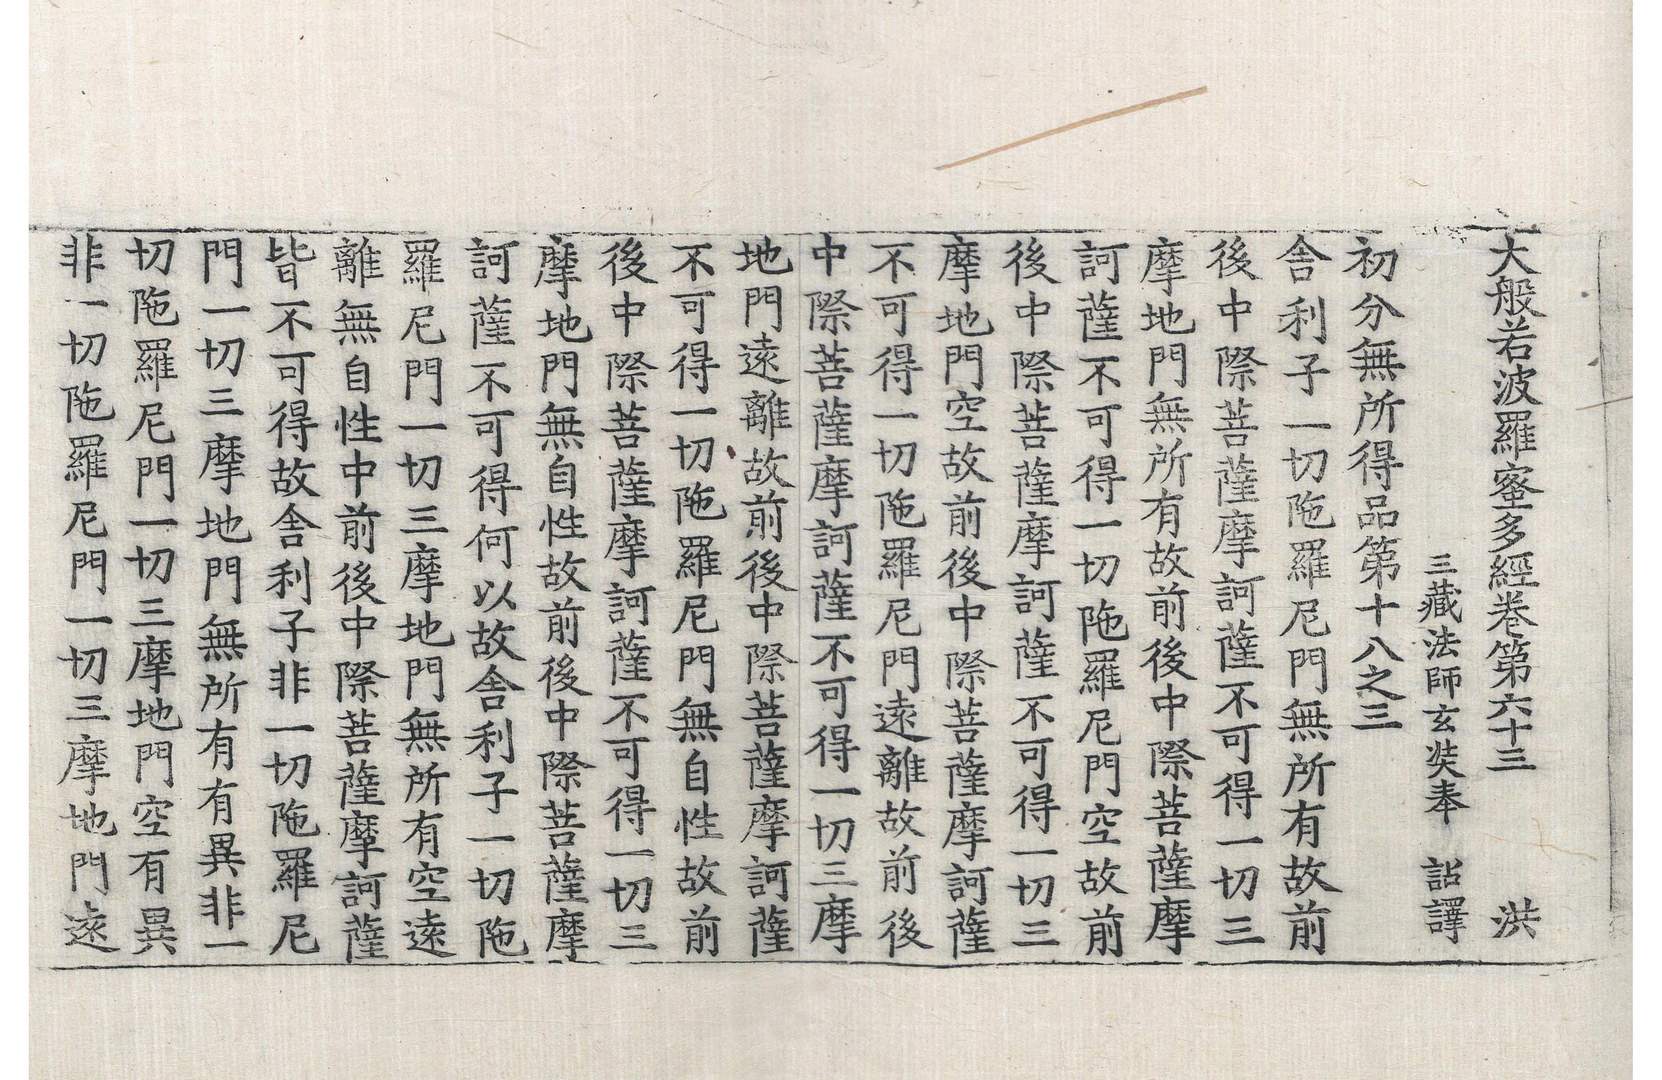 大般若波羅蜜多經卷第六十三 洪
三藏法師玄奘奉 詔譯
初分無所得品第十八之三
舎利子一切陁羅尼門無所有故前
後中際菩薩摩訶薩不可得一切三
摩地門無所有故前後中際菩薩摩
訶薩不可得一切陁羅尼門空故前
後中際菩薩摩訶薩不可得一切三
摩地門空故前後中際菩薩摩訶薩
不可得一切陁羅尼門遠離故前後
中際菩薩摩訶薩不可得一切三摩
地門遠離故前後中際菩薩摩訶薩
不可得一切陁羅尼門無自性故前
後中際菩薩摩訶薩不可得一切三
摩地門無自性故前後中際菩薩摩
訶薩不可得何以故舎利子一切陁
羅尼門一切三摩地門無所有空遠
離無自性中前後中際菩薩摩訶薩
皆不可得故舎利子非一切陁羅尼
門一切三摩地門無所有有異非一
切陁羅尼門一切三摩地門空有異
非一切陁羅尼門一切三摩地門遠